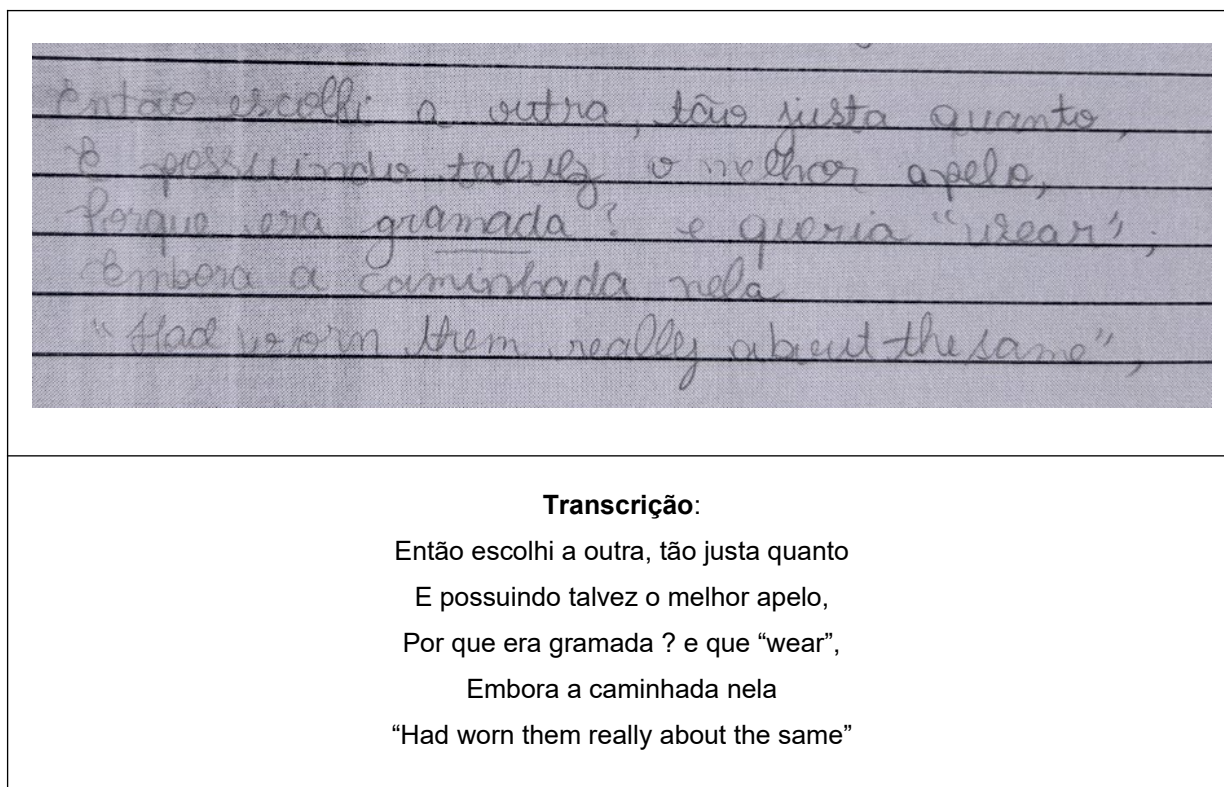 Então escolhi a outra, tão justa quanto,
E possuindo talvez o melhor apelo,
Porque era gramada? e queria "wear",
Embora a caminhada nela
"Had worn them really about the same",
Transcrição:
Então escolhi a outra, tão justa quanto
E possuindo talvez o melhor apelo,
Por que era gramada ? e que “wear”,
Embora a caminhada nela
“Had worn them really about the same”